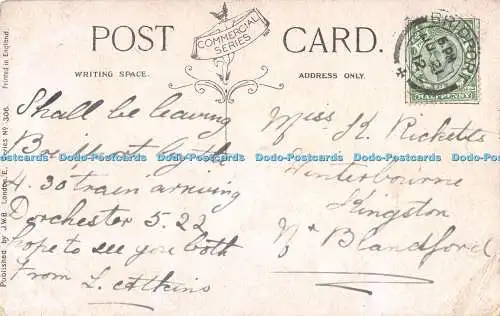 POST CARD.
COMMERCIAL SERIES
WRITING SPACE.
ADDRESS ONLY.
Printed in England.
Published by J.W.B. London, E. Series No. 306.
BRIDPORT
HALFPENNY
Shall be leaving
Bridport by the
4.30 train arriving
Dorchester 5.22
hope to see you both
From L. Atkins
Miss K. Ricketts
Winterbourne
Kingston
Nr Blandford
Dodo-Postcards Dodo-Postcards Dodo-Postcards Dodo-Postcards Dodo-Postcards